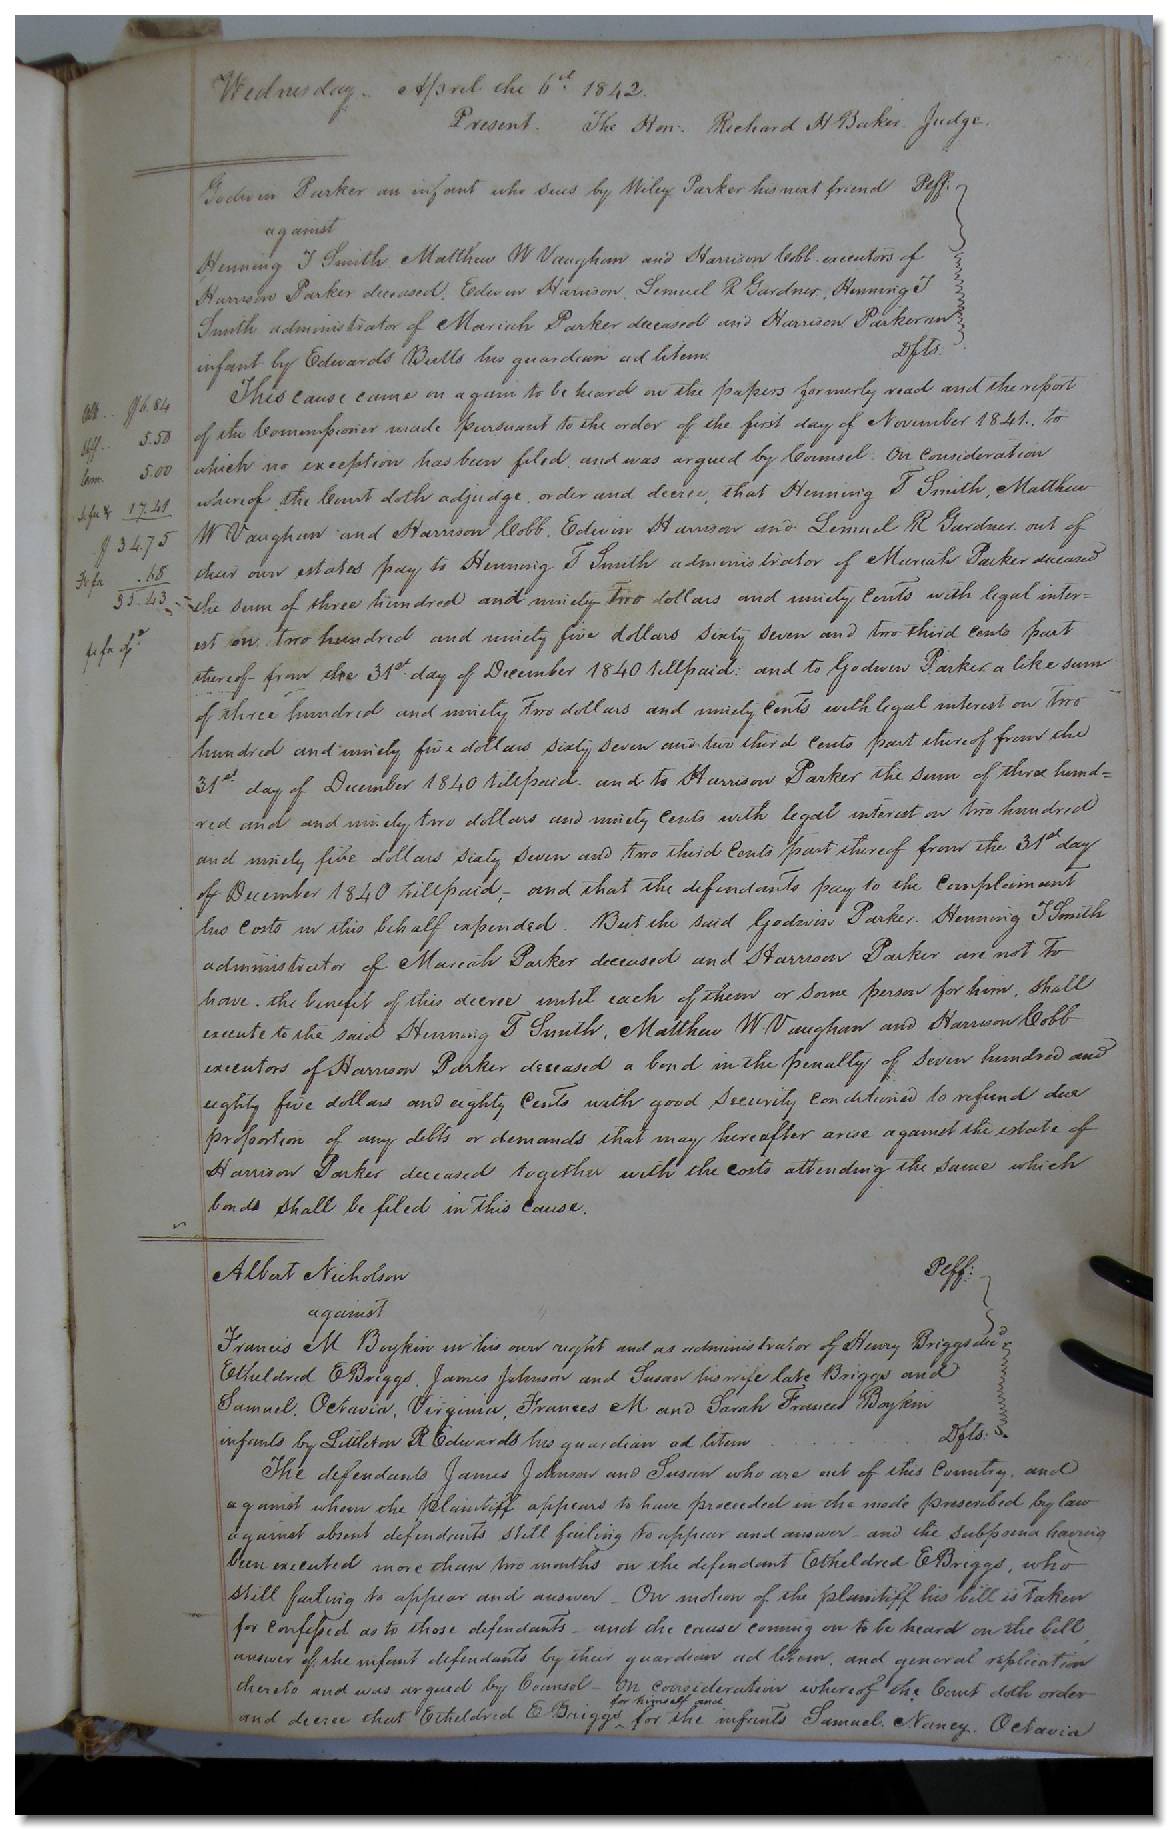 Wednesday. April the 6th 1842.
Present. The Hon: Richard H Baker Judge.
Godwin Parker an infant who sues by Wiley Parker his next friend Plff.
against
Henning T Smith Matthew W Vaughan and Harrison Cobb executors of
Harrison Parker deceased, Edwin Harrison, Lemuel R Gardner, Henning T
Smith administrator of Mariah Parker deceased and Harrison Parker an
infant by Edwards Butts his guardian ad litem. Dfts.
This cause came on again to be heard on the papers formerly read and the report
of the Commissioner made pursuant to the order of the first day of November 1841., to
which no exception has been filed, and was argued by Counsel. On consideration
whereof, the Court doth adjudge, order and decree, that Henning T Smith, Matthew
W Vaughan and Harrison Cobb, Edwin Harrison and Lemuel R Gardner out of
their own estates pay to Henning T Smith administrator of Mariah Parker deceased
the sum of three hundred and ninety two dollars and ninety cents with legal inter=
est on two hundred and ninety five dollars sixty seven and two third cents part
thereof from the 31st day of December 1840 till paid: and to Godwin Parker a like sum
of three hundred and ninety two dollars and ninety cents with legal interest on two
hundred and ninety five dollars sixty seven and two third cents part thereof from the
31st day of December 1840 till paid. and to Harrison Parker the sum of three hund=
red and and ninety two dollars and ninety cents with legal interest on two hundred
and ninety five dollars sixty seven and two third cents part thereof from the 31st day
of December 1840 till paid, and that the defendants pay to the complainant
his costs in this behalf expended. But the said Godwin Parker. Henning T Smith
administrator of Mariah Parker deceased and Harrison Parker are not to
have the benefit of this decree until each of them or some person for him, shall
execute to the said Henning T Smith, Matthew W Vaughan and Harrison Cobb
executors of Harrison Parker deceased a bond in the penalty of seven hundred and
eighty five dollars and eighty cents with good security conditioned to refund due
proportion of any debts or demands that may hereafter arise against the estate of
Harrison Parker deceased together with the costs attending the same which
bonds shall be filed in this cause.
$6.84
5.50
Com. 5.00
17.41
$34.75
Fi fa .68
35.43
fi fa
Albert Nicholson Plff:
against
Francis M Boykin in his own right and as administrator of Henry Briggs decd
Etheldred E Briggs, James Johnson and Susan his wife late Briggs and
Samuel, Octavia, Virginia, Frances M and Sarah Frances Boykin
infants by Littleton R Edwards his guardian ad litem Dfts:
The defendants James Johnson and Susan who are out of this Country, and
against whom the plaintiff appears to have proceeded in the mode prescribed by law
against absent defendants still failing to appear and answer and the subpoena having
been executed more than two months on the defendant Etheldred E Briggs, who
still failing to appear and answer On motion of the plaintiff his bill is taken
for confessed as to those defendants and the cause coming on to be heard on the bill,
answer of the infant defendants by their guardian ad litem, and general replication
thereto and was argued by Counsel On consideration whereof the Court doth order
for himself and
and decree that Etheldred E Briggs for the infants Samuel, Nancy, Octavia